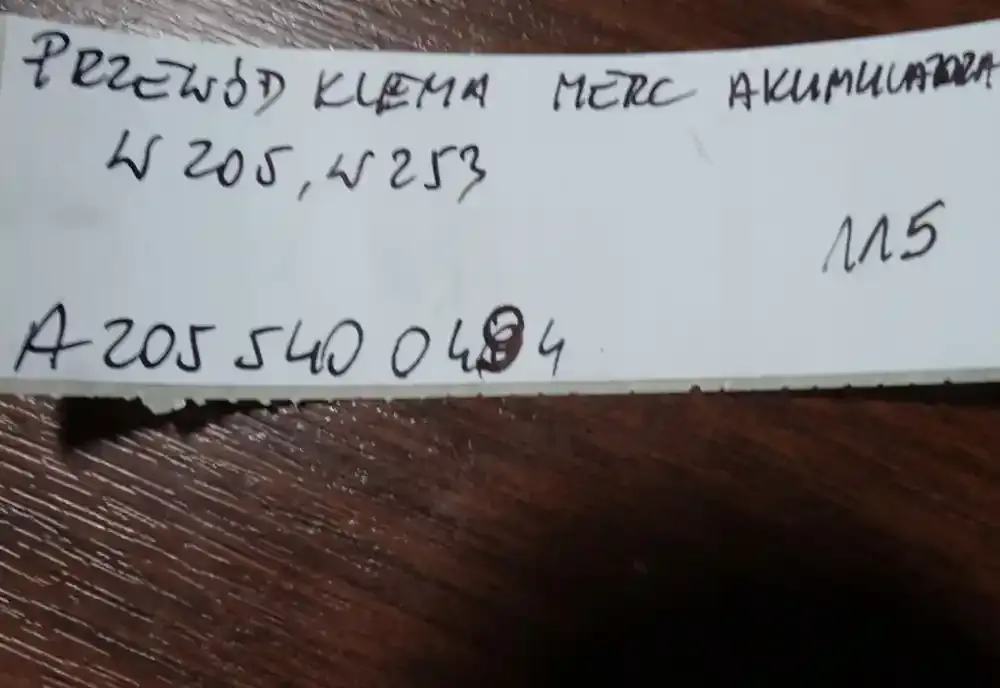 PRZEWÓD KLEMA MERC AKUMULATORA
W 205, W 253
115
A 205 540 0494